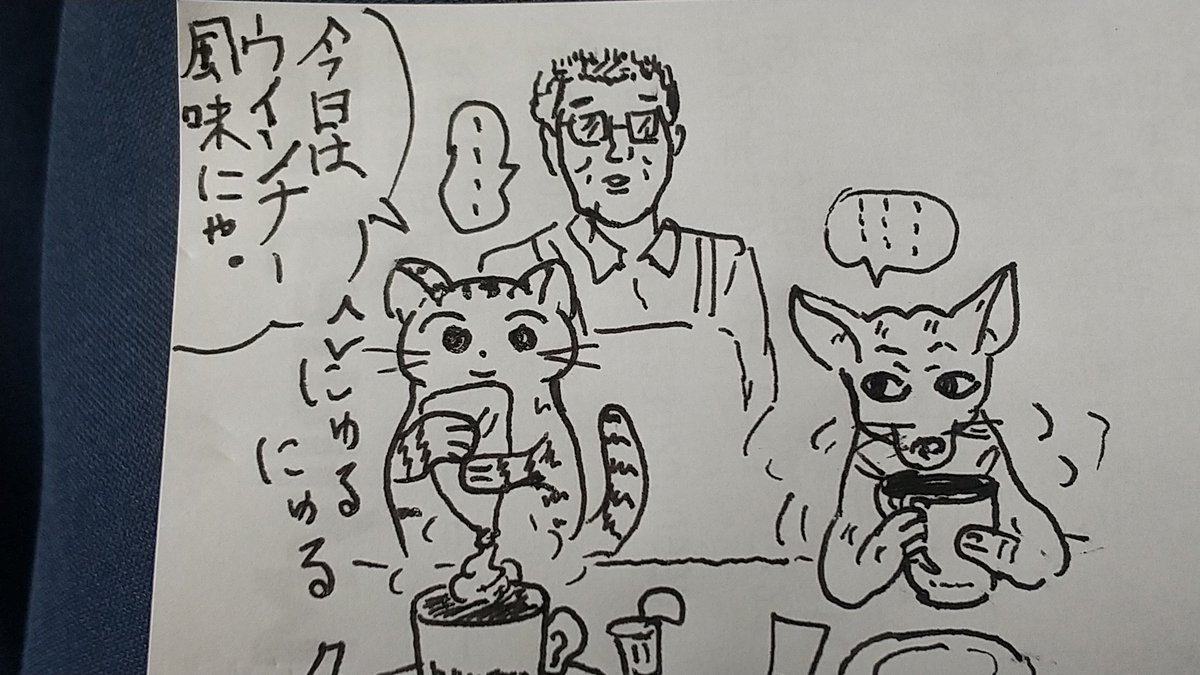 今日は
ウインナー
風味にゃ。
にゅる
にゅる